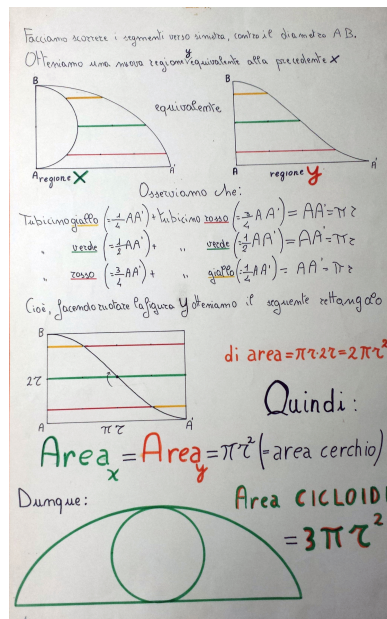 Facciamo scorrere i segmenti verso sinistra, contro il diametro AB.
Otteniamo una nuova regione y equivalente alla precedente x
B
B
equivalente
A regione X
A'
A
regione y
A'
Osserviamo che:
Tubicino giallo (=1/4 AA') + tubicino rosso (=3/4 AA') = AA' = πr
" verde (=1/2 AA') + " verde (=1/2 AA') = AA' = πr
" rosso (=3/4 AA') + " giallo (=1/4 AA') = AA' = πr
Cioè, facendo ruotare la figura y otteniamo il seguente rettangolo
B
2r
A
πr
A'
di area = πr·2r = 2πr²
Quindi:
Area x = Area y = πr² (= area cerchio)
Dunque:
Area CICLOID
= 3πr²